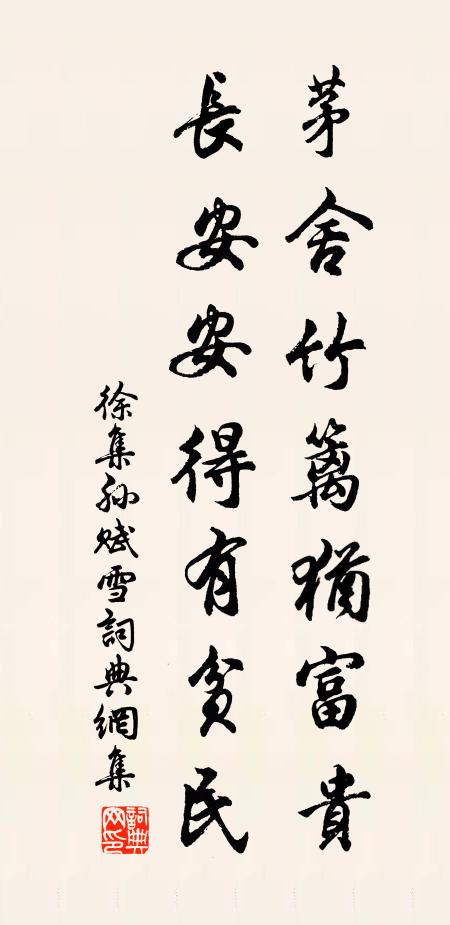 茅舍竹篱猶富貴
長安安得有貧民
徐集孙賦雪詞典網集
詞典网印